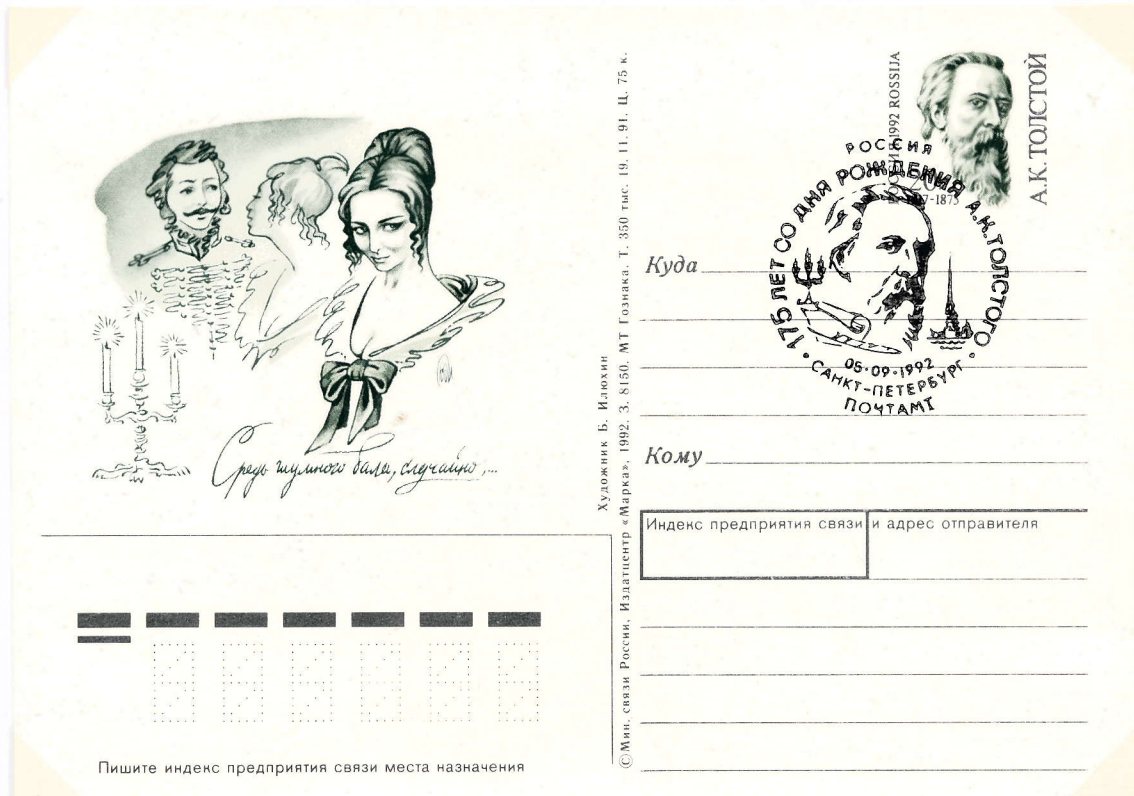 Средь шумного бала, случайно,...
Пишите индекс предприятия связи места назначения
Художник Б. Илюхин
© Мин. связи России, Издатцентр «Марка», 1992. З. 8150. МТ Гознака. Т. 350 тыс. 19. 11. 91. Ц. 75 к.
1992 ROSSIJA
А.К.ТОЛСТОЙ
РОССИЯ
175 ЛЕТ СО ДНЯ РОЖДЕНИЯ А.К.ТОЛСТОГО
05·09·1992
САНКТ-ПЕТЕРБУРГ
ПОЧТАМТ
Куда
Кому
Индекс предприятия связи и адрес отправителя